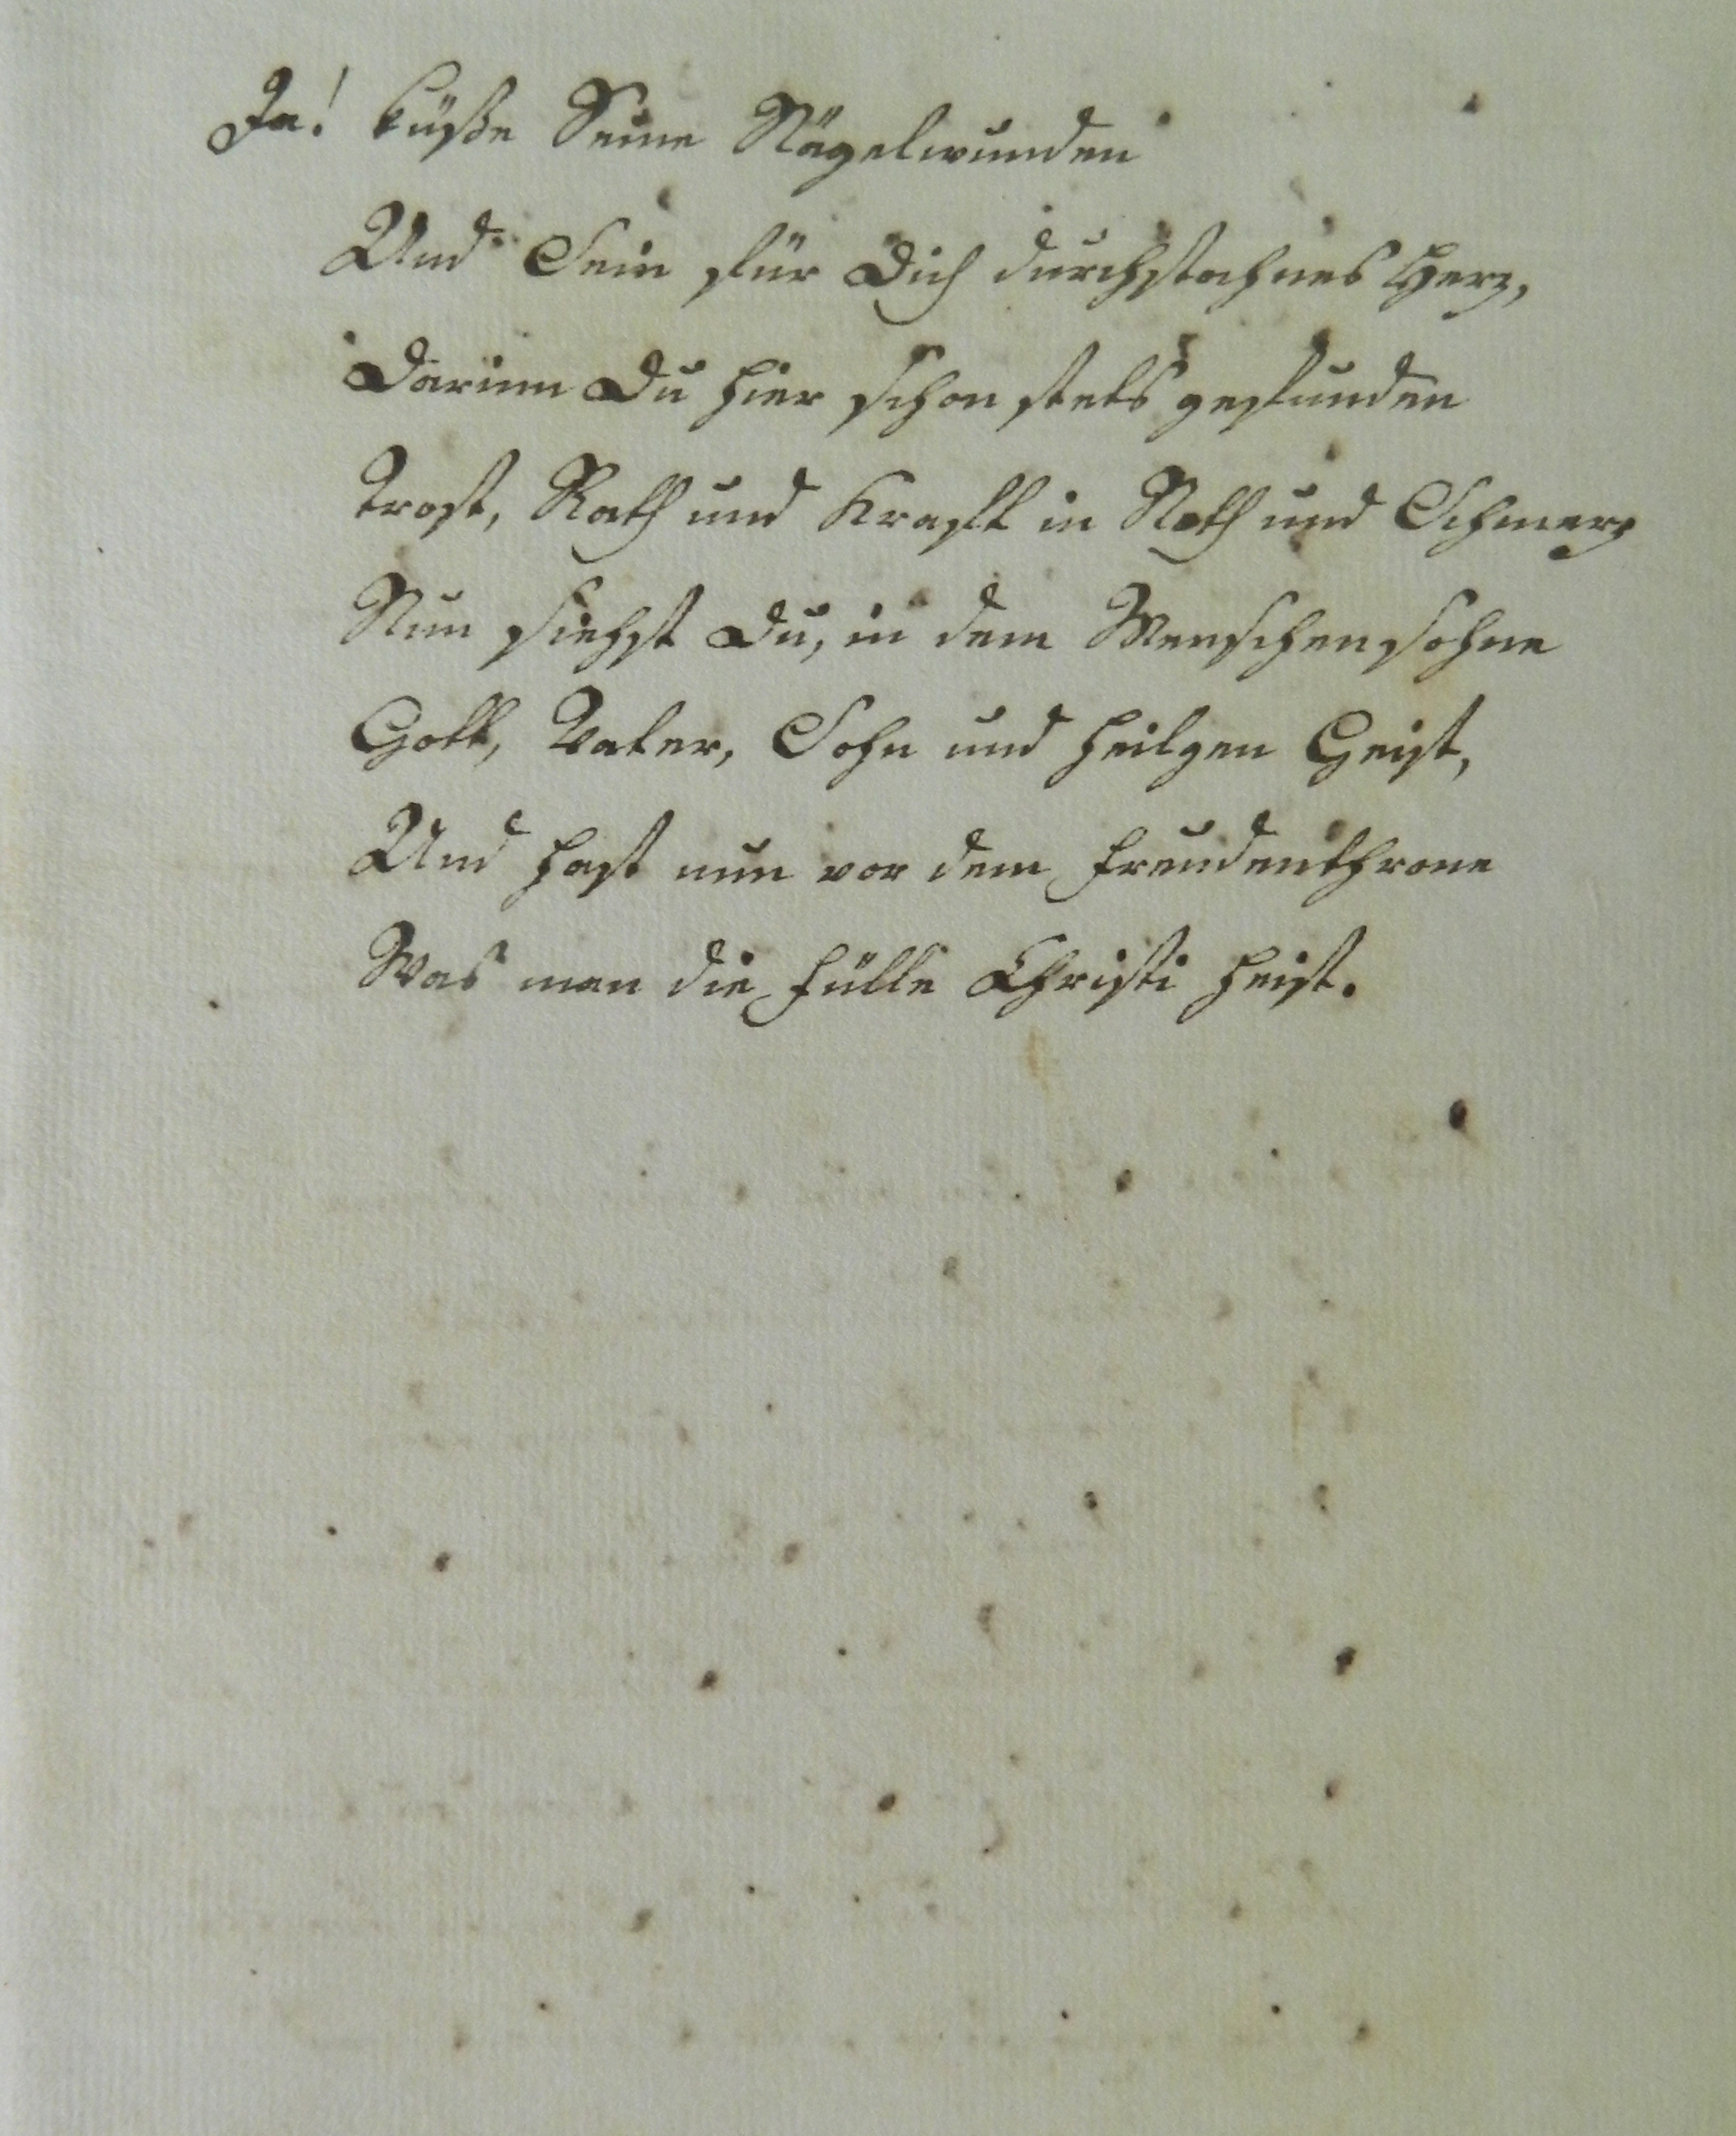 Ja! küße Seine Nägelwunden
Und Sein für Dich durchstochnes Herz,
Darinn Du hier schon stets gefunden
Trost, Rath und Kraft in Noth und Schmerz
Nun siehst Du, in dem Menschensohne
Gott, Vater, Sohn und heilgen Geist,
Und hast nun vor dem Freudenthrone
Was man die Fülle Christi heist.